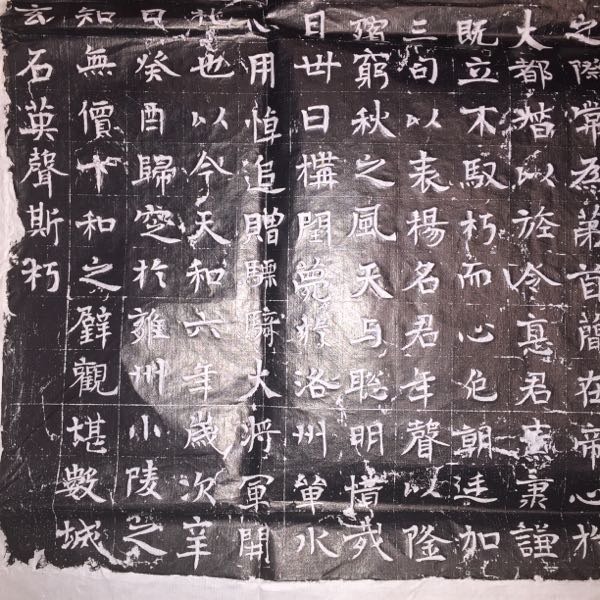 之際常爲第首簡在帝心於
大都督以旌令惪君稟謙
既立不馭朽而心危朝廷加
三旬以表揚名君年聲以隆
窮秋之風天与聦明惜哉
日丗日構閏薨於洛州單水
心用悼追贈驃騎大將軍開
也以今天和六年歲次辛
癸酉歸窆於雍州小陵之
知無價十和之璧觀堪數城
玄石英聲斯朽